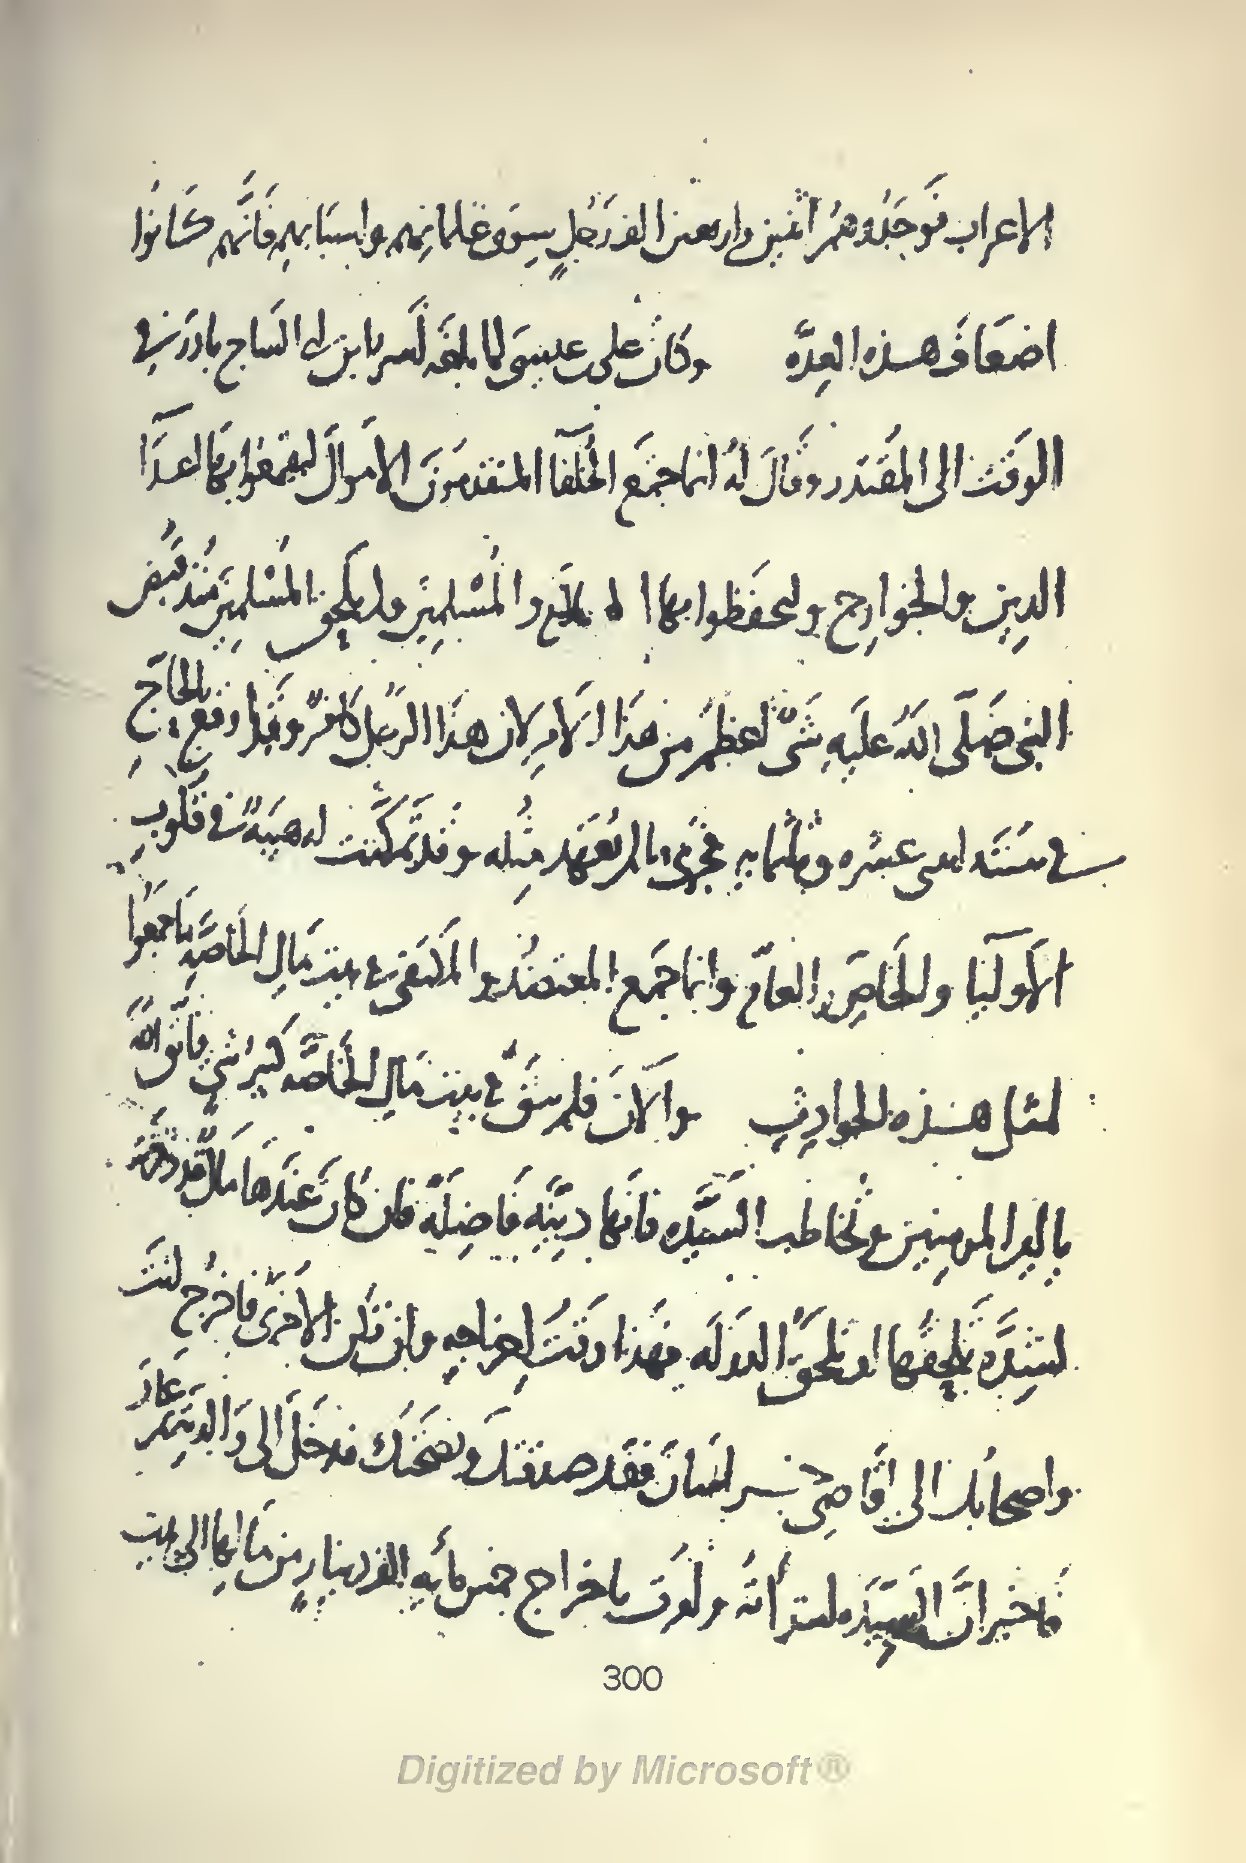 الاعراب فوجدوهم اثنين واربعين الف رجل سوى غلمانهم واسبابهم فانهم كانوا
اضعاف هذه العدة وكان علي بن عيسى لما بلغه اسر ابن ابي الساج بادر في
الوقت الى المقتدر وقال له انما جمع الخلفا المتقدمون الاموال ليقمعوا بها اعدا
الدين والخوارج وليحفظوا بها الاسلام والمسلمين ولم يلحق المسلمين منذ قبض
النبي صلى الله عليه شي اعظم من هذا الامر لان هذا الرجل كافر وقد اوقع بالحاج
في سنة احدى عشره وثلثمايه فجرى ما لم يعهد مثله وقد تمكنت له هيبة في قلوب
الاوليا والخاص والعام وانما جمع المعتضد والمكتفي في بيت مال الخاصه ما جمعوا
لمثل هذه الحوادث والان فلم يبق في بيت مال الخاصه كبير شي فاتق الله
يا امير المومنين وتخاطب السيده فانها دينه فاضله فان كان عندها مال قد ذخرته
لشدة تلحقها او تلحق الدوله فهذا وقت اخراجه وان تكن الاخرى فاخرج انت
واصحابك الى اقاصي خراسان فقد صدقتك ونصحتك فدخل الى والدته ثم عاد
فاخبر ان السيده ابتداته وامرت باخراج خمس مائه الف دينار من مالها الى بيت
300
Digitized by Microsoft®